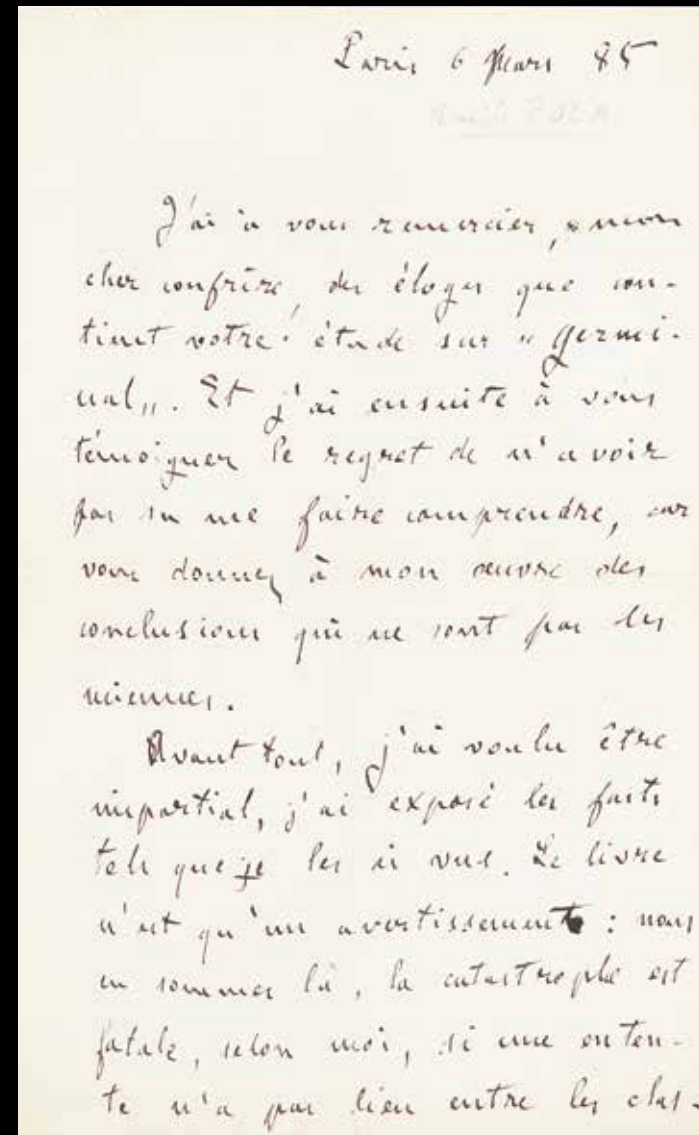 Paris 6 Mars 85
Emile ZOLA
J'ai à vous remercier, mon
cher confrère, des éloges que con-
tient votre étude sur " Germi-
nal„. Et j'ai ensuite à vous
témoigner le regret de n'avoir
pas su me faire comprendre, car
vous donnez à mon œuvre des
conclusions qui ne sont pas les
miennes.
Avant tout, j'ai voulu être
impartial, j'ai exposé les faits
tels que je les ai vus. Le livre
n'est qu'un avertissement : nous
en sommes là, la catastrophe est
fatale, selon moi, si une enten-
te n'a pas lieu entre les clas-